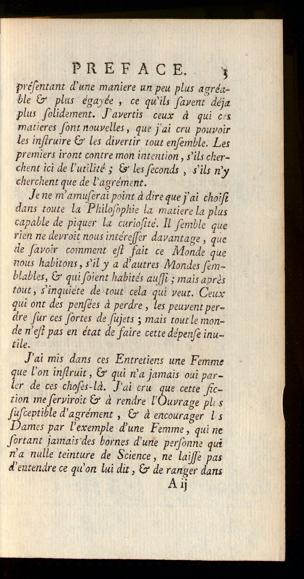 PREFACE. 3
présentant d'une maniere un peu plus agréa-
ble & plus égayée, ce qu'ils savent déja
plus solidement. J'avertis ceux à qui ces
matieres sont nouvelles, que j'ai cru pouvoir
les instruire & les divertir tout ensemble. Les
premiers iront contre mon intention, s'ils cher-
chent ici de l'utilité ; & les seconds, s'ils n'y
cherchent que de l'agrément.
Je ne m'amuserai point à dire que j'ai choisi
dans toute la Philosophie la matiere la plus
capable de piquer la curiosité. Il semble que
rien ne devroit nous intéresser davantage, que
de savoir comment est fait ce Monde que
nous habitons, s'il y a d'autres Mondes sem-
blables, & qui soient habités aussi ; mais après
tout, s'inquiete de tout cela qui veut. Ceux
qui ont des pensées à perdre, les peuvent per-
dre sur ces sortes de sujets ; mais tout le mon-
de n'est pas en état de faire cette dépense inu-
tile.
J'ai mis dans ces Entretiens une Femme
que l'on instruit, & qui n'a jamais oui par-
ler de ces choses-là. J'ai cru que cette fic-
tion me serviroit & à rendre l'Ouvrage plus
susceptible d'agrément, & à encourager les
Dames par l'exemple d'une Femme, qui ne
sortant jamais des bornes d'une personne qui
n'a nulle teinture de Science, ne laisse pas
d'entendre ce qu'on lui dit, & de ranger dans
A ij